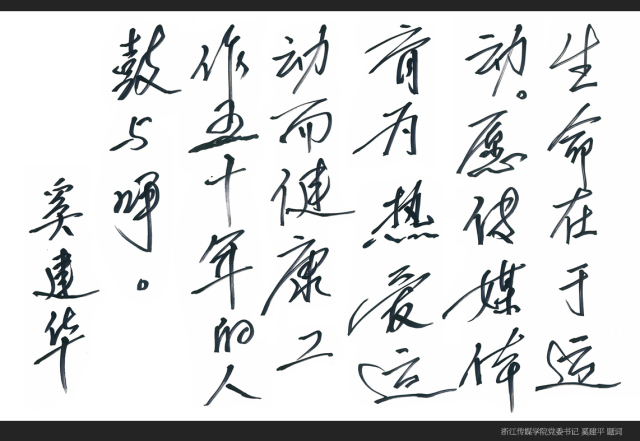 生命在于运
动。愿传媒体
育为热爱运
动而健康工
作五十年的人
鼓与呼。
奚建华
浙江传媒学院党委书记 奚建平 题词